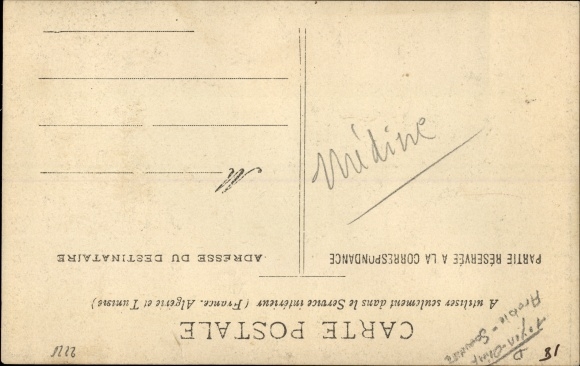 CARTE POSTALE
A utiliser seulement dans le Service intérieur (France, Algérie et Tunisie)
PARTIE RÉSERVÉE A LA CORRESPONDANCE
ADRESSE DU DESTINATAIRE
M
Médine
18
D
Moyen-Orient
Arabie-Saoudite